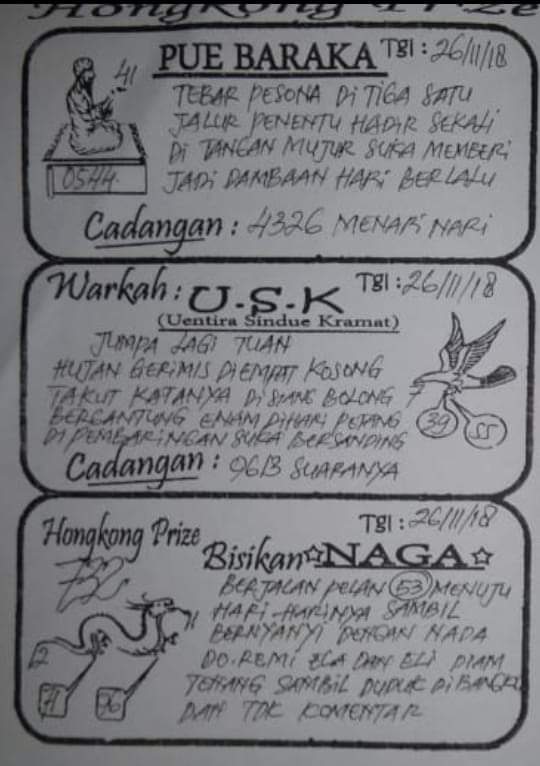 Hongkong Prize
PUE BARAKA
Tgl : 26/11/18
41
TEBAR PESONA Di TIGA SATU
JALUR PENENTU HADIR SEKALI
Di TANGAN MUJUR SUKA MEMBERI
0544
JADI DAMBAAN HARI BERLALU
Cadangan : 4326 MENARI NARI
Warkah : U-S-K
Tgl : 26/11/18
(Uentira Sindue Kramat)
JUMPA LAGI TUAN
HUJAN GERIMIS DIEMPAT KOSONG
TAKUT KATANYA Di SIANG BOLONG
7
BERGANTUNG ENAM DIHARI PETANG
39
55
DI PEMBARINGAN SUKA BERSANDING
Cadangan : 9613 SUARANYA
Hongkong Prize
Tgl : 26/11/18
732
Bisikan ☆NAGA☆
BERJALAN PELAN 53 MENUJU
HARI-HARINYA SAMBIL
BERNYANYI DENGAN NADA
DO.REMI ECA DAN ELI DIAM
2
TENANG SAMBIL DUDUK DiBANGKU
71
96
DAN TDK KOMENTAR